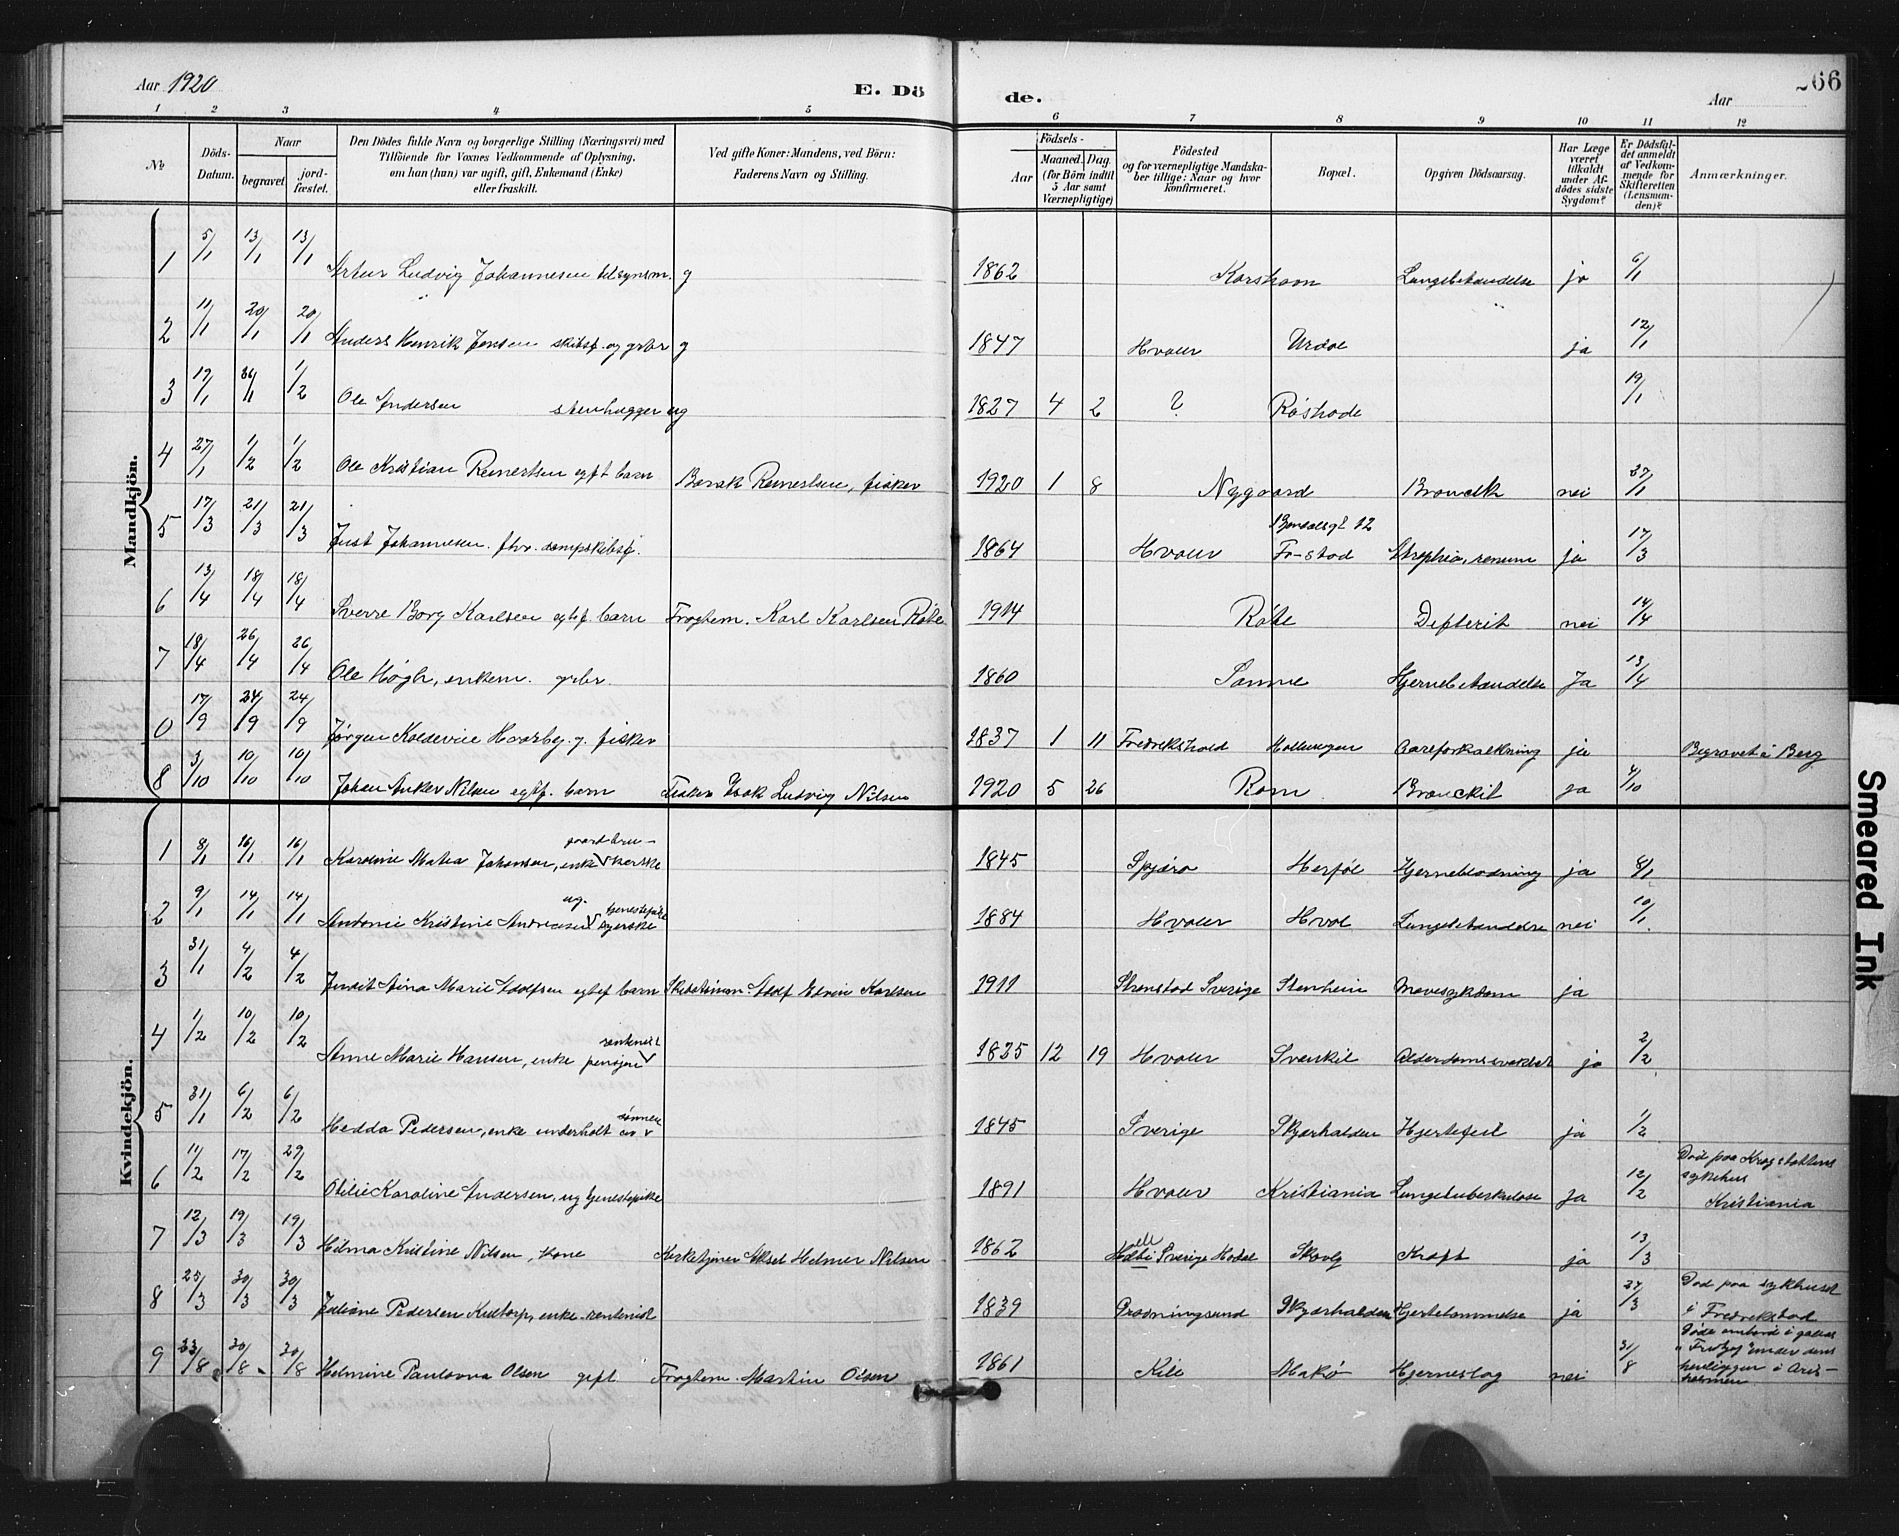 Aar 1920
E. Dö
de.
Aar
266
1 2 3 4 5 6 7 8 9 10 11 12
№
Döds-Datum.
Naar
begravet
jord-fæstet.
Den Dödes fulde Navn og borgerlige Stilling (Næringsvei) med
Tilföiende for Voxnes Vedkommende af Oplysning,
om han (hun) var ugift, gift, Enkemand (Enke)
eller fraskilt.
Ved gifte Koner: Mandens, ved Börn:
Faderens Navn og Stilling.
Födsels-
Aar
Maaned. Dag.
(for Börn indtil
5 Aar samt
Værnepligtige)
Födested
og for værnepligtige Mandska-
ber tillige: Naar og hvor
konfirmeret.
Bopæl.
Opgiven Dödsaarsag.
Har Læge
været
tilkaldt
under Af-
dödes sidste
Sygdom?
Er Dödsfal-
det anmeldt
af Vedkom-
mende for
Skifteretten
(Lensman-
den)?
Anmærkninger.
Mandkjön.
1 5/1 13/1 13/1 Artur Ludvig Johannesen tilsynsm. g 1862 Korshavn Lungebetændelse ja 6/1
2 11/1 20/1 20/1 Anders Henrik Jensen skibsf. og grbr g 1847 Hvaler Urdal ja 12/1
3 17/1 1/2 Ole Andersen stenhugger ug 1827 4 2 ? Røshode 19/1
4 27/1 1/2 1/2 Ole Kristian Reinertsen egft barn Barak Reinertsen, fisker 1920 1 8 Nygaard nei 27/1
5 17/3 21/3 21/3 Just Johannesen. fhv. dampskibsf. 1864 Hvaler 12 Fr-stad ja 17/3
6 13/4 18/4 18/4 Sverre Borg Karlsen egtef. barn Fraghem. Karl Karlsen Røbe 1914 Røbe Difterit nei 14/4
7 18/4 26/4 26/4 Ole Høgh, enkem. grbr. 1860 Sanne Hjernebetændelse Ja 13/4
0 17/9 24/9 24/9 Jørgen g. fisker 1837 1 11 Fredrikshald Aareforkalkning ja Begravet i Berg
8 3/10 10/10 10/10 Johan Anker Nilsen egtf. barn Fisker Isak Ludvig Nilsen 1920 5 26 Rom Bronckit ja 4/10
Kvindekjön.
1 8/1 16/1 16/1 Karoline Matea Johansen, enke gaardbru-kerske 1845 Spjærø Herføl Hjerneblødning ja 8/1
2 9/1 14/1 14/1 Antonie Kristine Andreasen ug. tjenestepike syerske 1884 Hvaler Hval Lungebetændelse nei 10/1
3 31/1 4/2 4/2 Judit Aina Marie Adolfsen egtef barn Skibstimm. Adolf Edvin Karlsen 1911 Strømstad Sverige Stenheim Mavesykdom ja
4 1/2 10/2 10/2 Anne Marie Hansen, enke pensjon 1835 12 19 Hvaler Svenkil Alderdomssvakhet ja 2/2
5 31/1 6/2 6/2 Hedda Pedersen, enke underholt av sønner 1845 Sverige Skjærhalden Hjertefeil ja 1/2
6 11/2 17/2 29/2 Otilie Karoline Andersen, ug tjenestepike 1891 Hvaler Kristiania Lungetuberkulose ja 12/2 Død paa Krogstøttens sykehus Kristiania
7 12/3 19/3 19/3 Hilma Kristine Nilsen, kone Kirketjener Aksel Helmer Nilsen 1862 Sverige Skovlg Kræft ja 13/3
8 25/3 30/3 30/3 Juliane Pedersen enke 1839 Dröningsund Skjærhalden Hjertelammelse ja 27/3 Død paa sykhuset i Fredrikstad
9 23/8 30/8 30/8 Helmine Paulovna Olsen gift Fraghem. Martin Olsen 1861 Kile Makø Hjerneslag nei 31/8 Døde ombord i "Fritjof" under dens
Smeared Ink